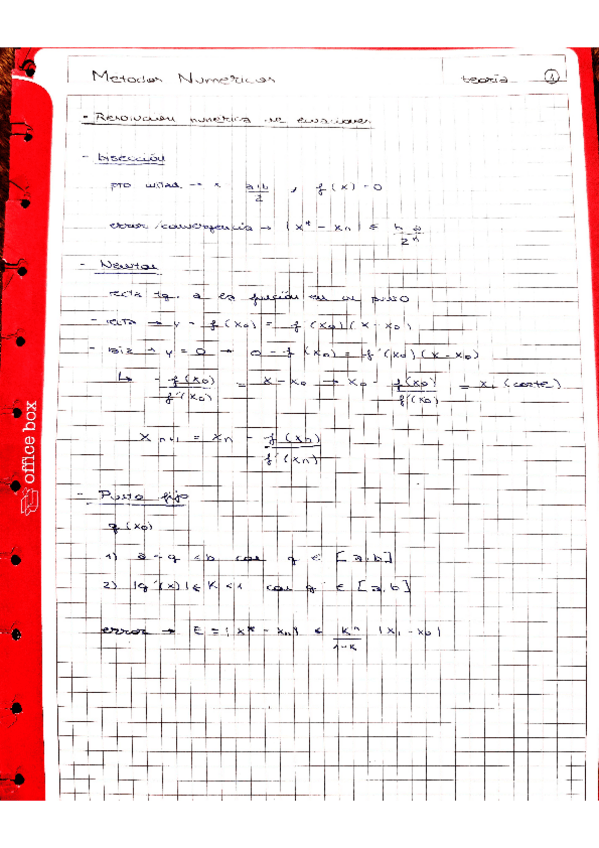 Metodos Numericos teoría 1
- Resolucion numerica de ecuaciones
- bisección
pto mitad → x a+b/2 , f(x) = 0
error/convergencia → |x* - xn| ≤ b-a/2^n
- Newton
recta tg. a la función en un punto
- recta → y - f(x0) = f'(x0)(x - x0)
y = 0 → 0 - f(x0) = f'(x0)(x - x0)
↳ - f(x0)/f'(x0) = x - x0 → x0 - f(x0)/f'(x0) = x1 (corte)
x n+1 = xn - f(xn)/f'(xn)
- Punto fijo
g(x0)
1) a < g < b con g ∈ [a,b]
2) |g'(x)| ≤ K < 1 con g' ∈ [a,b]
error → E = |x* - xn| ≤ K^n/1-K |x1 - x0|
office box